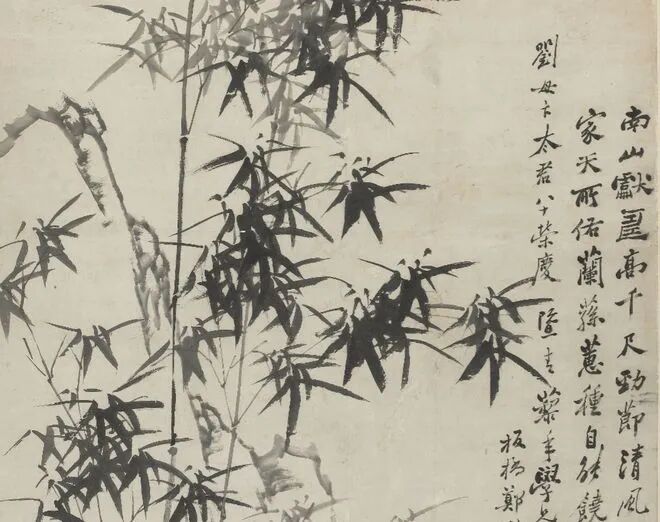 南山獻壽高千尺勁節清風
家天所佑蘭蓀蕙種自能饒
劉母卞太君八十榮慶 暨青藜年學兄
板橋鄭